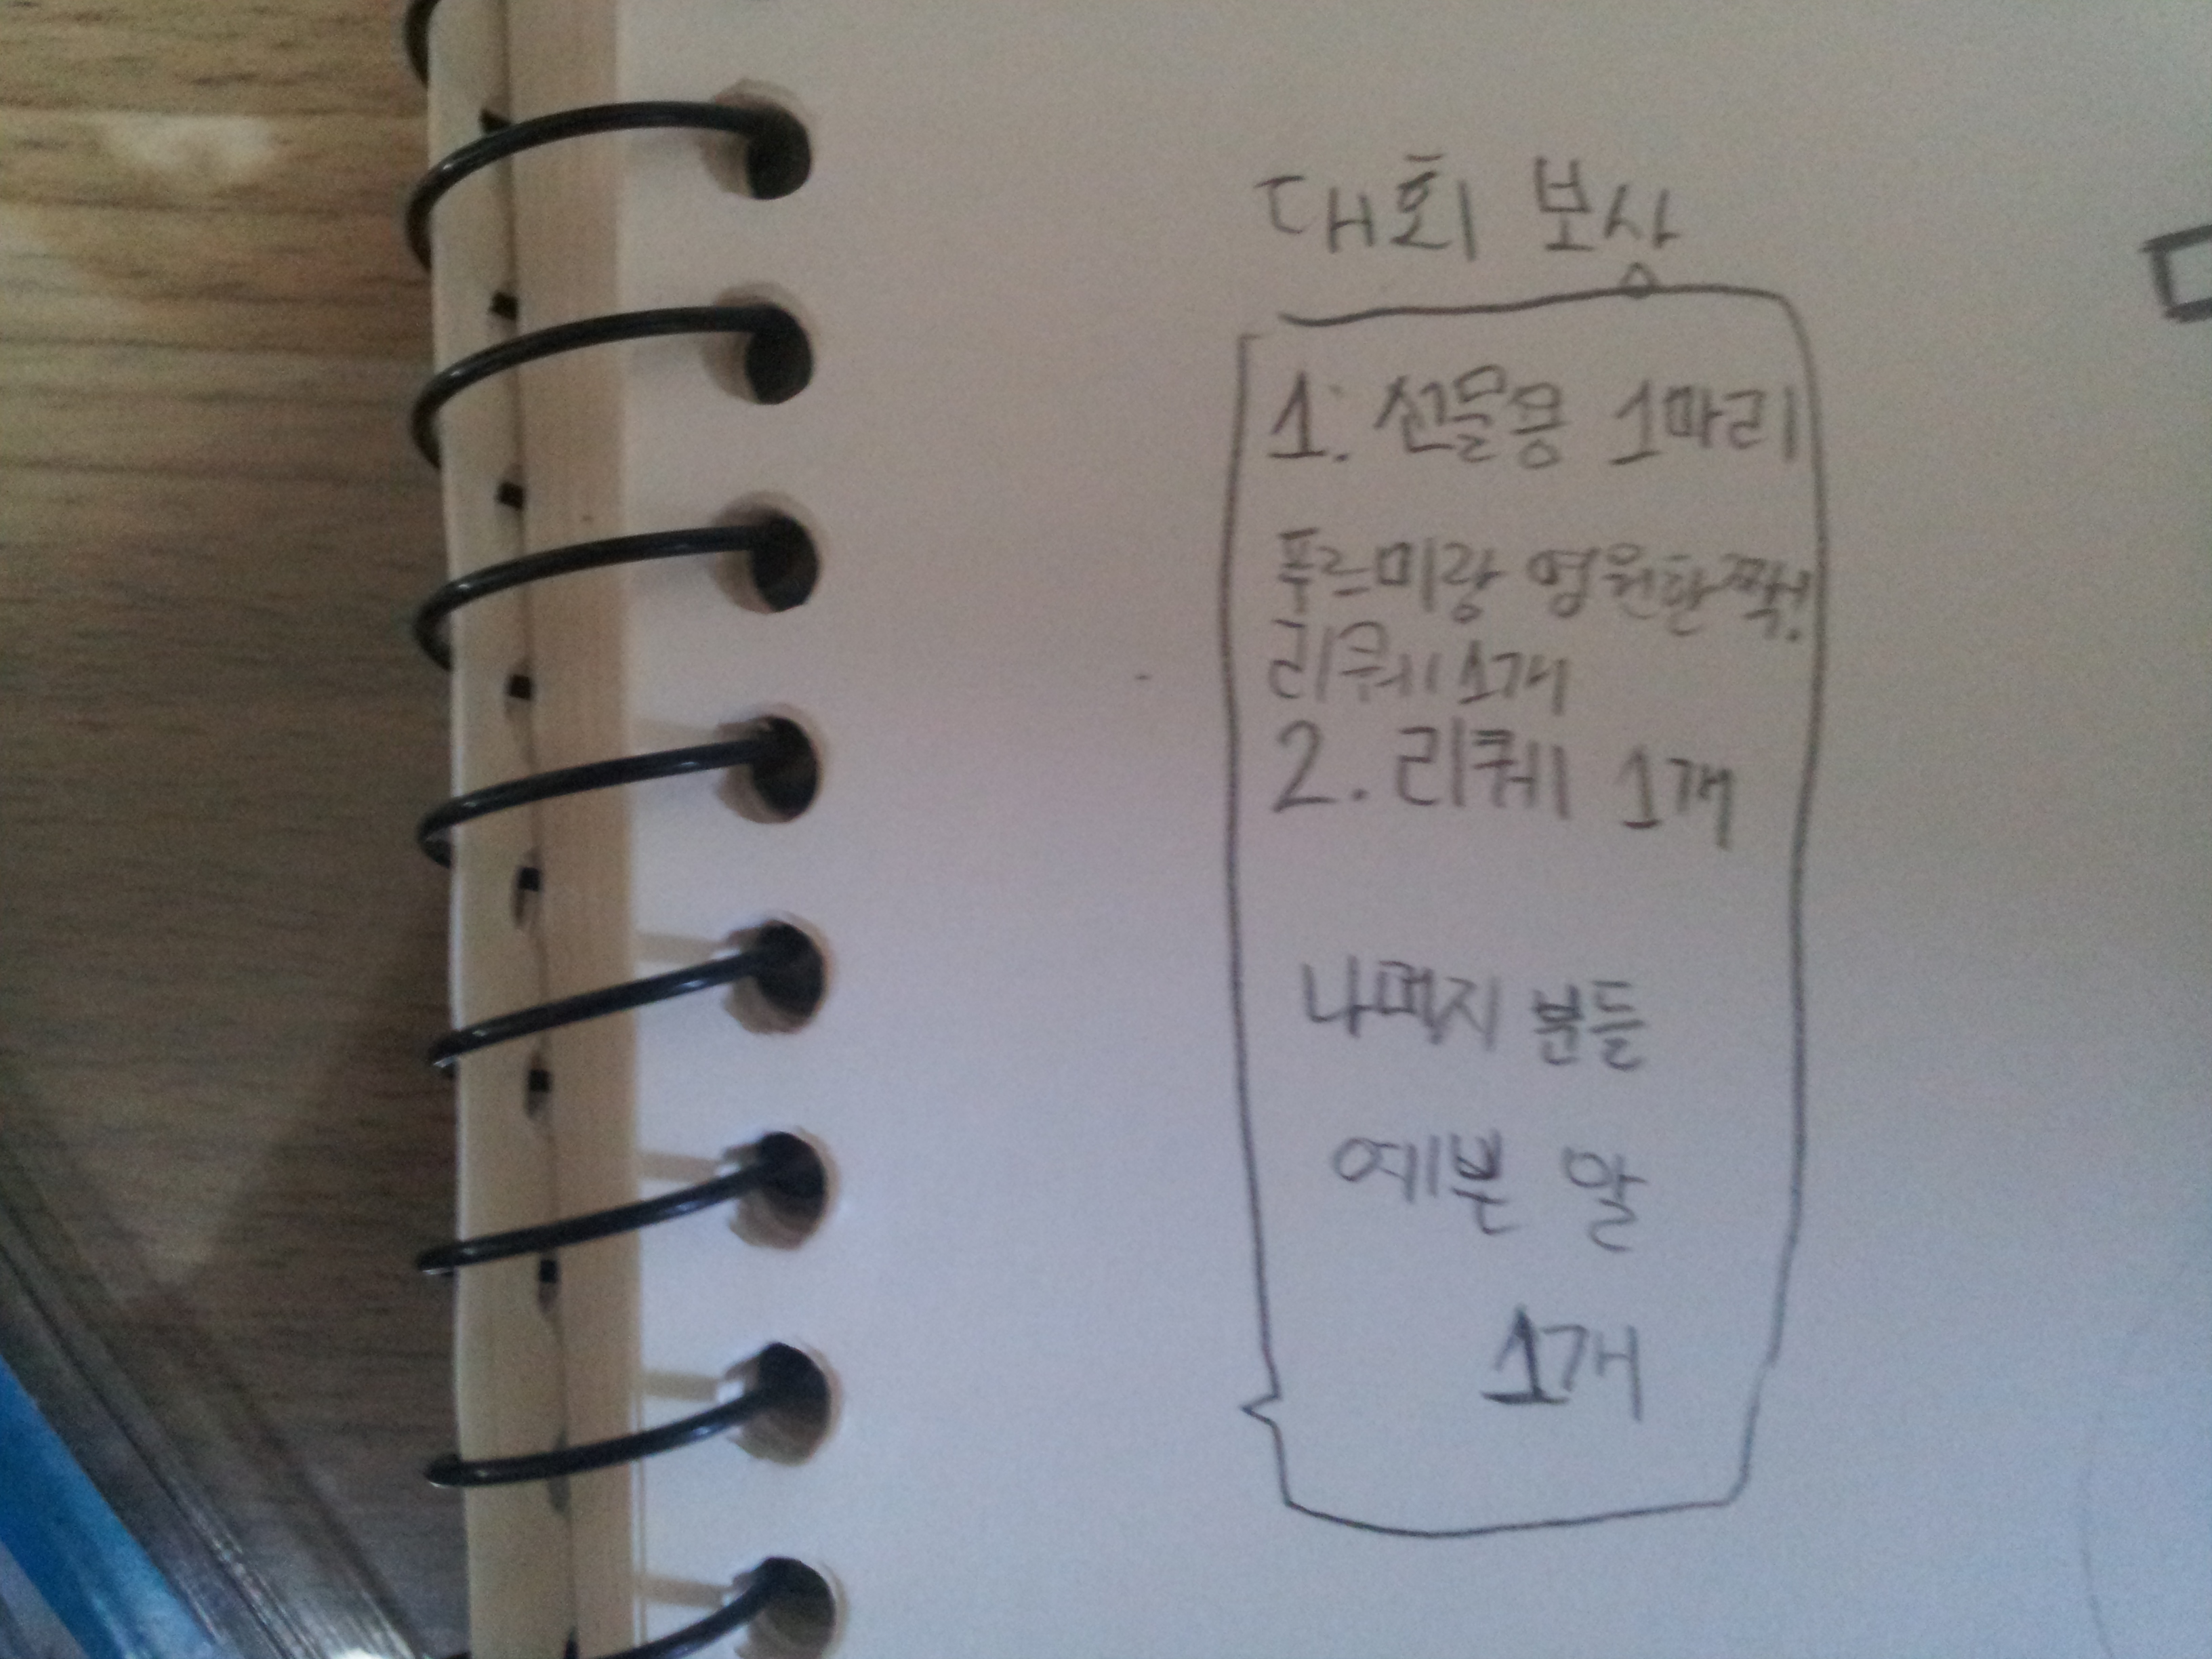 대회 보상
1. 선물용 1마리
푸르미랑 영원한짝!
리퀘 1개
2. 리퀘 1개
나머지 분들
예쁜 알
1개